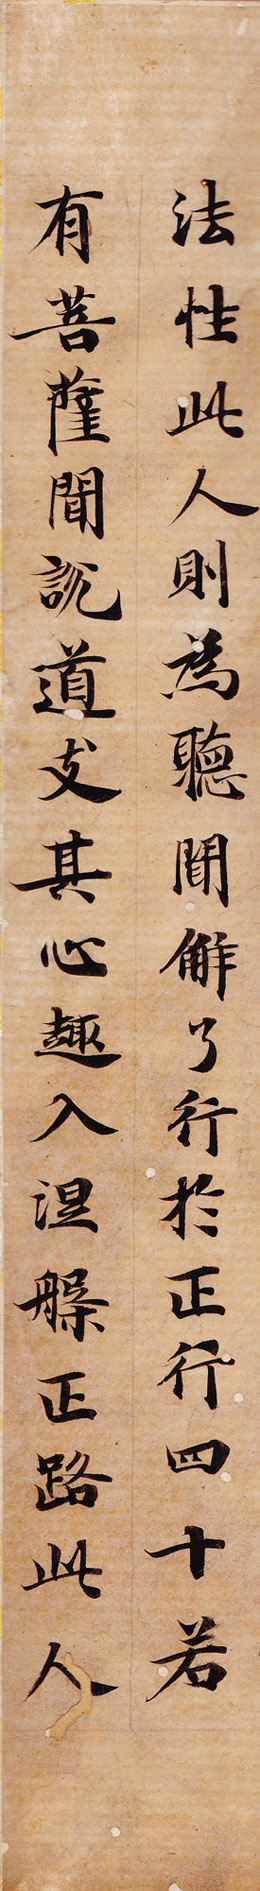 法性此人則為聽聞解了行於正行四十若
有菩薩聞說道支其心趣入涅槃正路此人